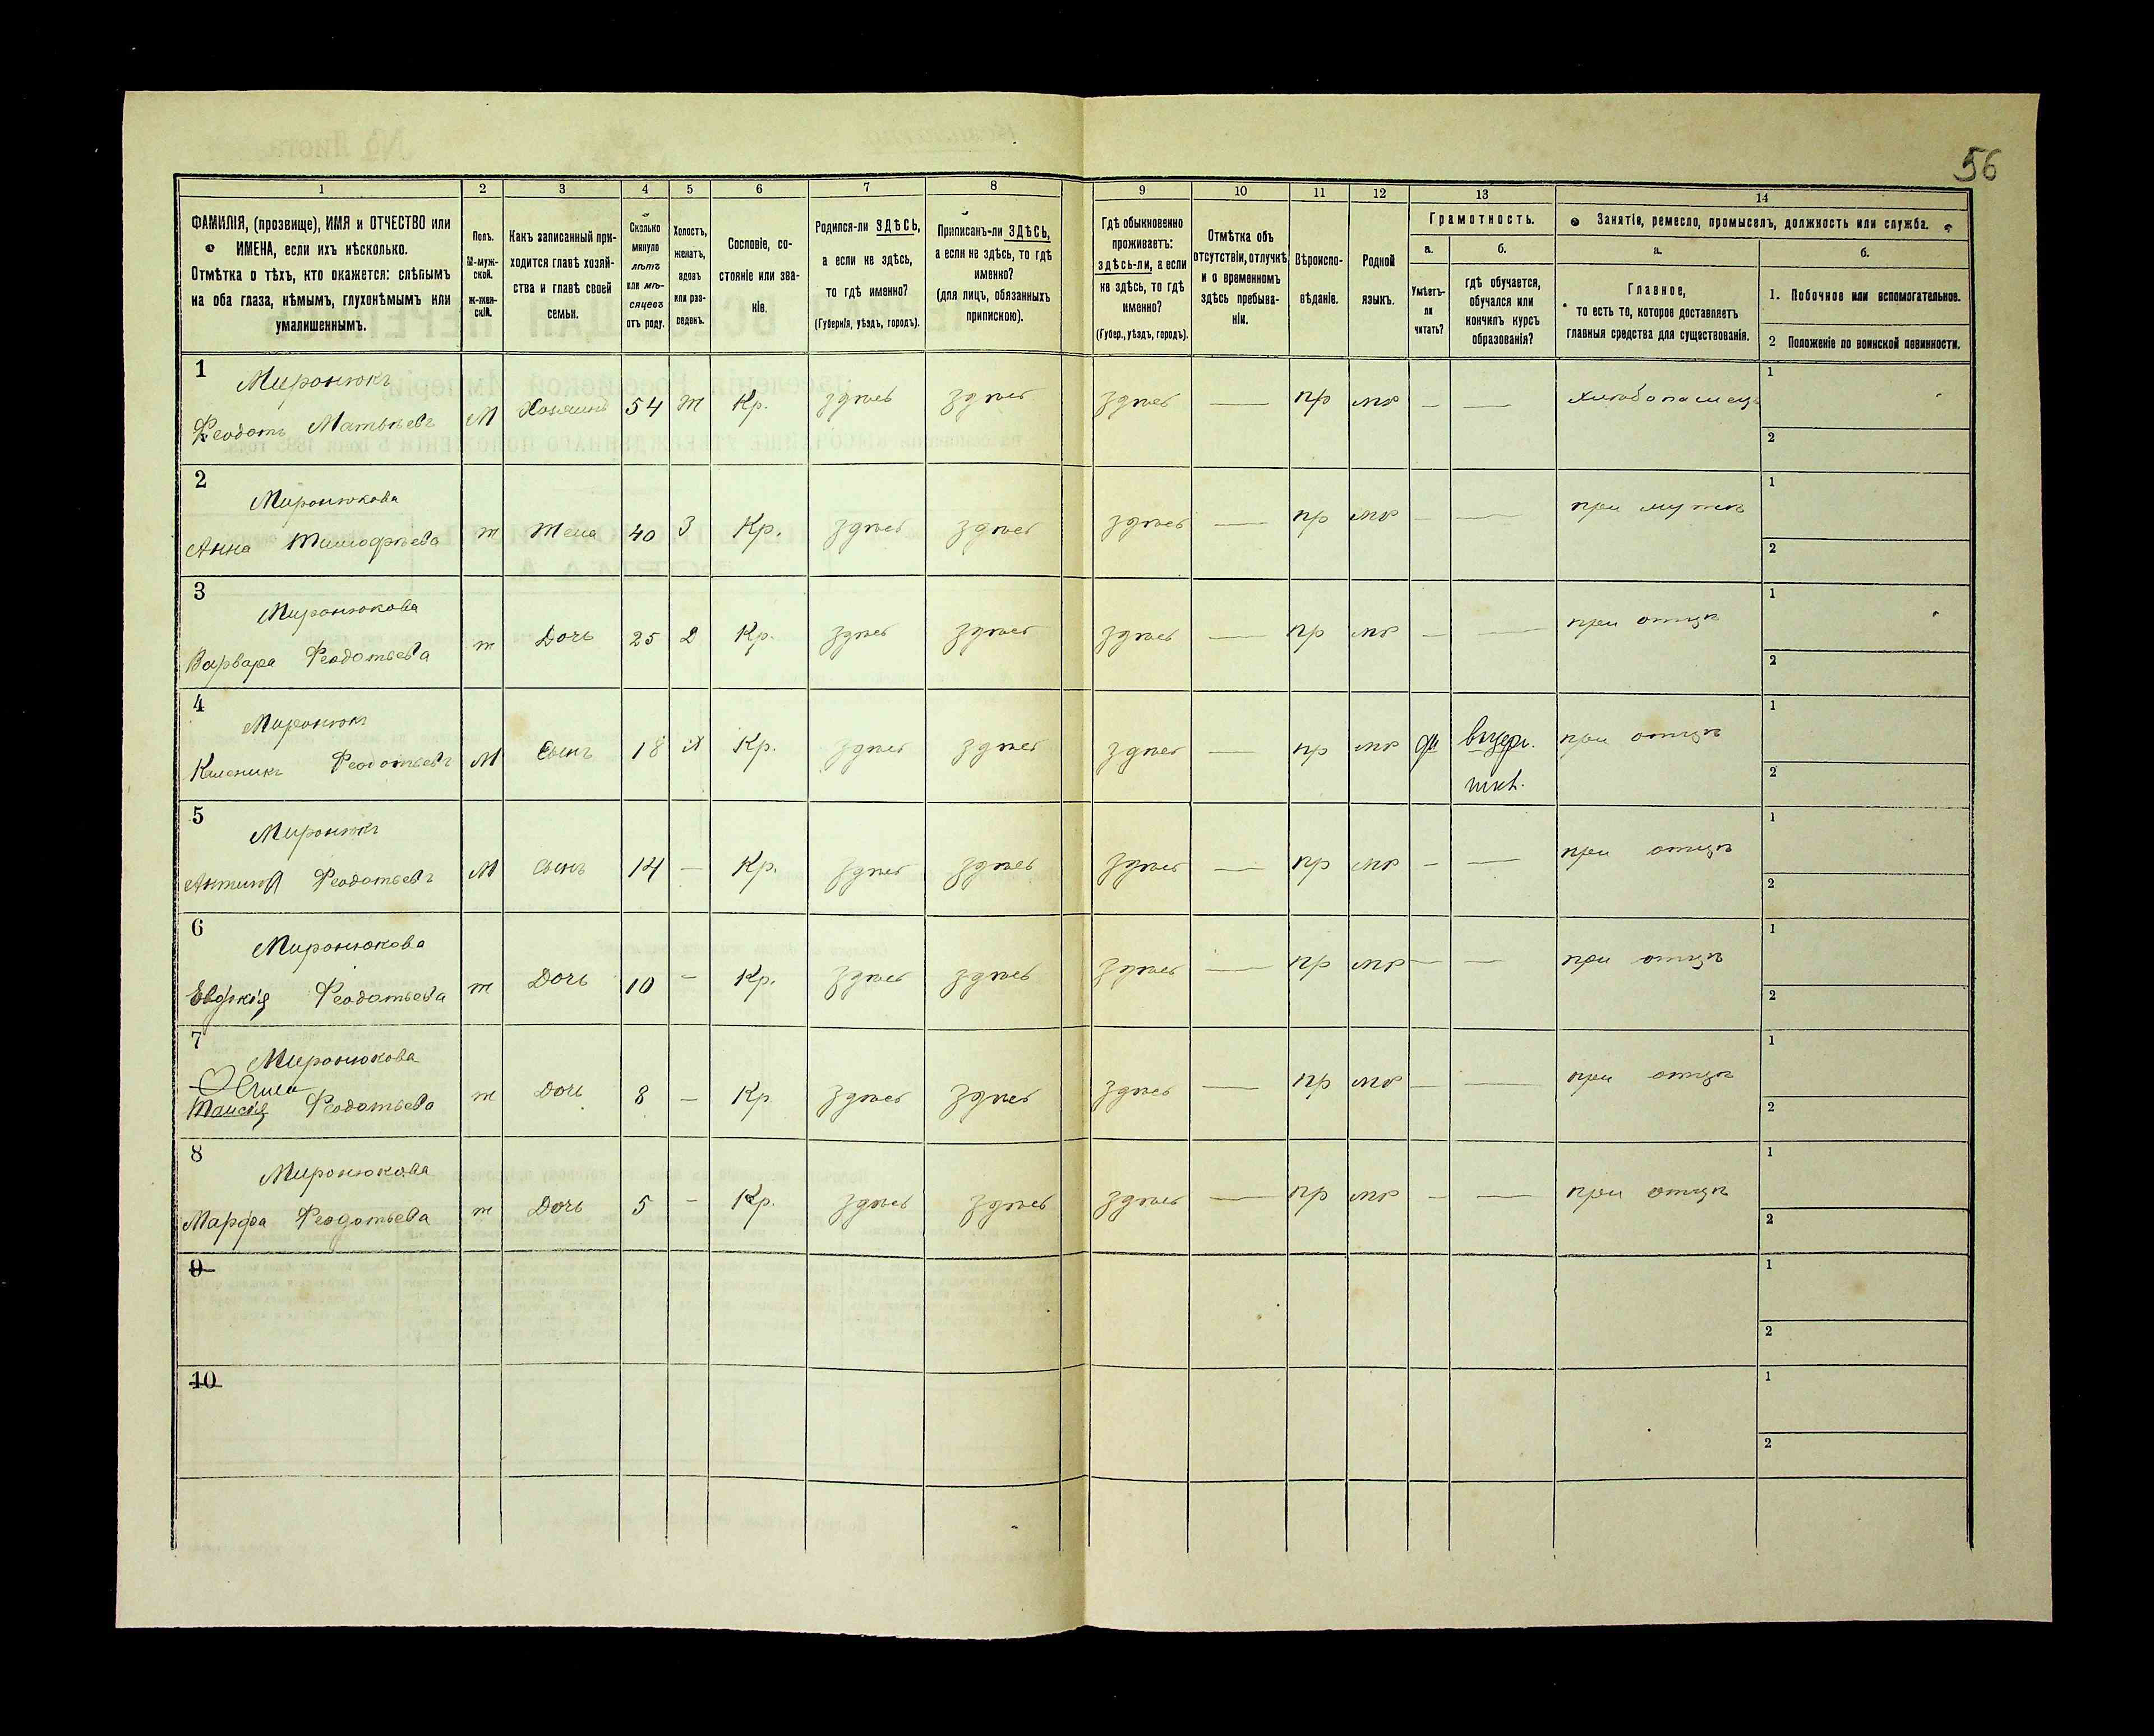 56
1
2
3
4
5
6
7
8
9
10
11
12
13
14
ФАМИЛІЯ, (прозвище), ИМЯ и ОТЧЕСТВО или
ИМЕНА, если ихъ нѣсколько.
Отмѣтка о тѣхъ, кто окажется: слѣпымъ
на оба глаза, нѣмымъ, глухонѣмымъ или
умалишеннымъ.
Полъ.
М-муж-
ской.
ж-жен-
скій.
Какъ записанный при-
ходится главѣ хозяй-
ства и главѣ своей
семьи.
Сколько
минуло
лѣтъ
или мѣ-
сяцевъ
отъ роду.
Холостъ,
женатъ,
вдовъ
или раз-
веденъ.
Сословіе, со-
стояніе или зва-
ніе.
Родился-ли ЗДѢСЬ,
а если не здѣсь,
то гдѣ именно?
(Губернія, уѣздъ, городъ).
Приписанъ-ли ЗДѢСЬ,
а если не здѣсь, то гдѣ
именно?
(для лицъ, обязанныхъ
припискою).
Гдѣ обыкновенно
проживаетъ:
здѣсь-ли, а если
не здѣсь, то гдѣ
именно?
(Губер., уѣздъ, городъ).
Отмѣтка объ
отсутствіи, отлучкѣ
и о временномъ
здѣсь пребыва-
ніи.
Вѣроиспо-
вѣданіе.
Родной
языкъ.
Грамотность.
а.
Умѣетъ-
ли
читать?
б.
гдѣ обучается,
обучался или
кончилъ курсъ
образованія?
Занятія, ремесло, промыселъ, должность или служба.
а.
Главное,
то есть то, которое доставляетъ
главныя средства для существованія.
б.
1. Побочное или вспомогательное.
2 Положеніе по воинской повинности.
1 Миронюкъ
Феодотъ Матвѣевъ М Хозяинъ 54 ж Кр. здѣсь здѣсь здѣсь — пр мр — — хлѣбопашецъ
1
2
2 Миронюкова
Анна Тимофѣева ж Жена 40 З Кр. здѣсь здѣсь здѣсь — пр мр — — при мужѣ
1
2
3 Миронюкова
Варвара Феодотьева ж Дочь 25 Д Кр. здѣсь здѣсь здѣсь — пр мр — — при отцѣ
1
2
4 Миронюкъ
Каленикъ Феодотьевъ М Сынъ 18 Х Кр. здѣсь здѣсь здѣсь — пр мр да при отцѣ
1
2
5 Миронюкъ
Феодотьевъ М сынъ 14 — Кр. здѣсь здѣсь здѣсь — пр мр — — при отцѣ
1
2
6 Миронюкова
Евдокія Феодотьева ж Дочь 10 — Кр. здѣсь здѣсь здѣсь — пр мр — — при отцѣ
1
2
7 Миронюкова
Таисія Феодотьева ж Дочь 8 — Кр здѣсь здѣсь здѣсь — пр мр — — при отцѣ
1
2
8 Миронюкова
Марфа Феодотьева ж Дочь 5 — Кр. здѣсь здѣсь здѣсь — пр мр — — при отцѣ
1
2
9
1
2
10
1
2